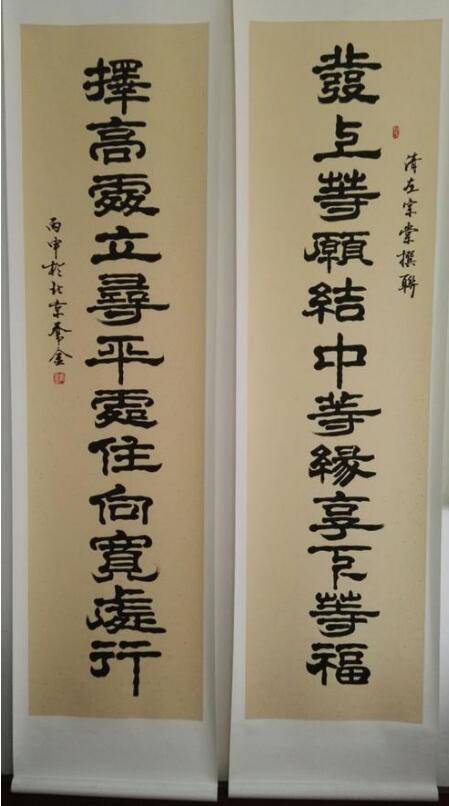 發上等願結中等緣享下等福
清左宗棠撰聯
擇高處立尋平處住向寬處行
丙申於北京